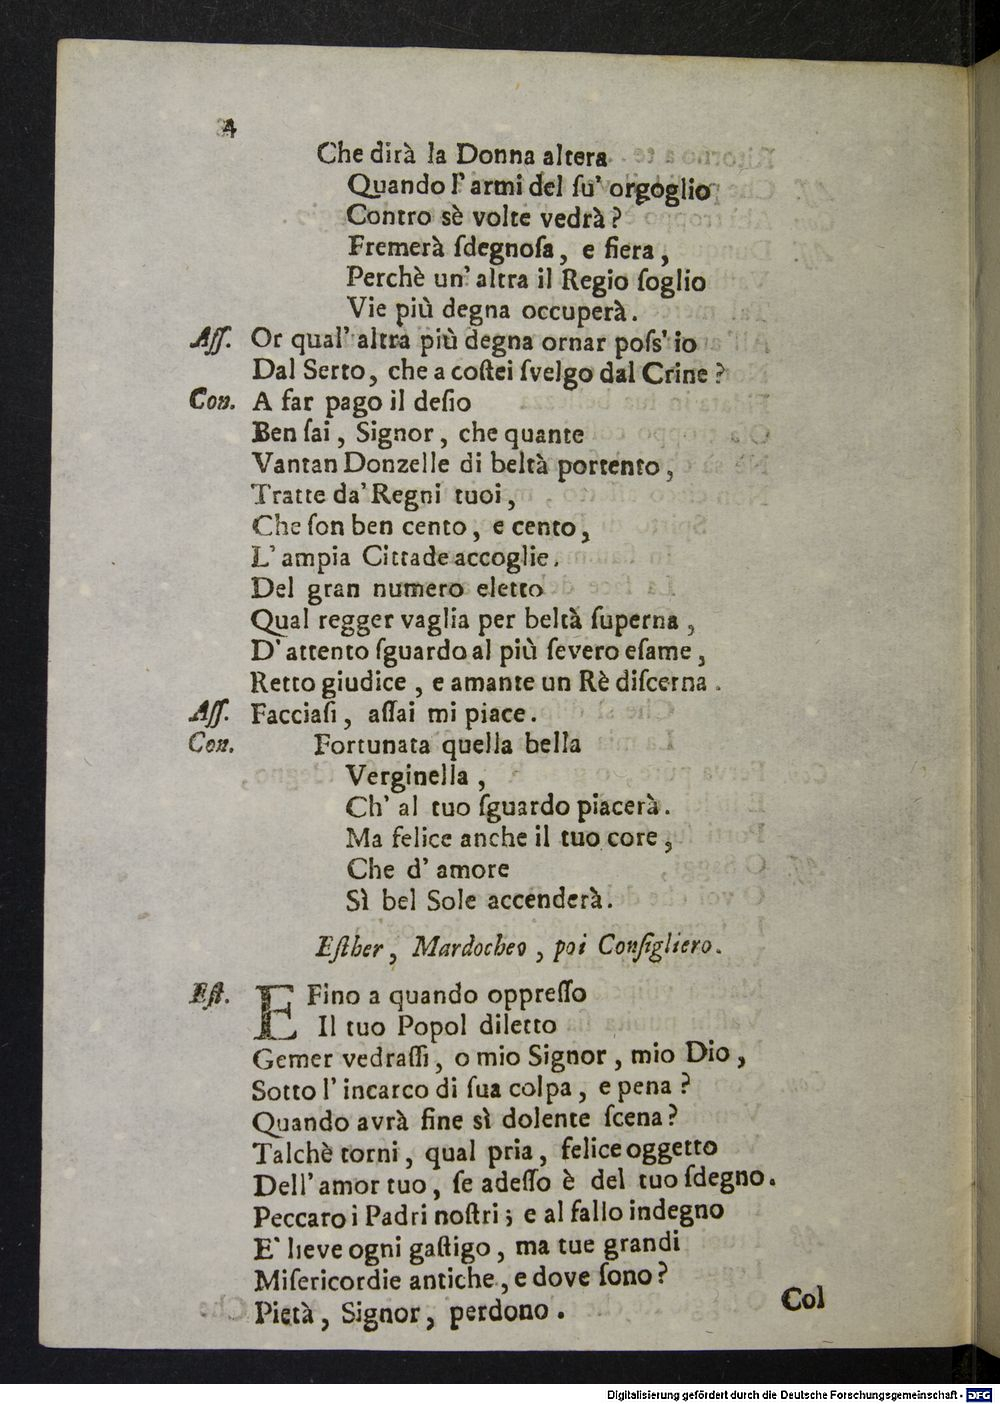 4
Che dirà la Donna altera
Quando l' armi del ſu' orgoglio
Contro sè volte vedrà?
Fremerà ſdegnoſa, e fiera,
Perchè un' altra il Regio ſoglio
Vie più degna occuperà.
Aſſ. Or qual' altra più degna ornar poſs' io
Dal Serto, che a coſtei ſvelgo dal Crine?
Con. A far pago il deſio
Ben ſai, Signor, che quante
Vantan Donzelle di beltà portento,
Tratte da' Regni tuoi,
Che ſon ben cento, e cento,
L' ampia Cittade accoglie.
Del gran numero eletto
Qual regger vaglia per beltà ſuperna,
D' attento ſguardo al più ſevero eſame,
Retto giudice, e amante un Rè diſcerna.
Aſſ. Facciaſi, aſſai mi piace.
Con. Fortunata quella bella
Verginella,
Ch' al tuo ſguardo piacerà.
Ma felice anche il tuo core,
Che d' amore
Sì bel Sole accenderà.
Eſther, Mardocheo, poi Conſigliero.
Eſt. E Fino a quando oppreſſo
Il tuo Popol diletto
Gemer vedraſſi, o mio Signor, mio Dio,
Sotto l' incarco di ſua colpa, e pena?
Quando avrà fine sì dolente ſcena?
Talchè torni, qual pria, felice oggetto
Dell' amor tuo, ſe adeſſo è del tuo ſdegno.
Peccaro i Padri noſtri; e al fallo indegno
E' lieve ogni gaſtigo, ma tue grandi
Miſericordie antiche, e dove ſono?
Pietà, Signor, perdono.
Col
Digitalisierung gefördert durch die Deutsche Forschungsgemeinschaft - DFG